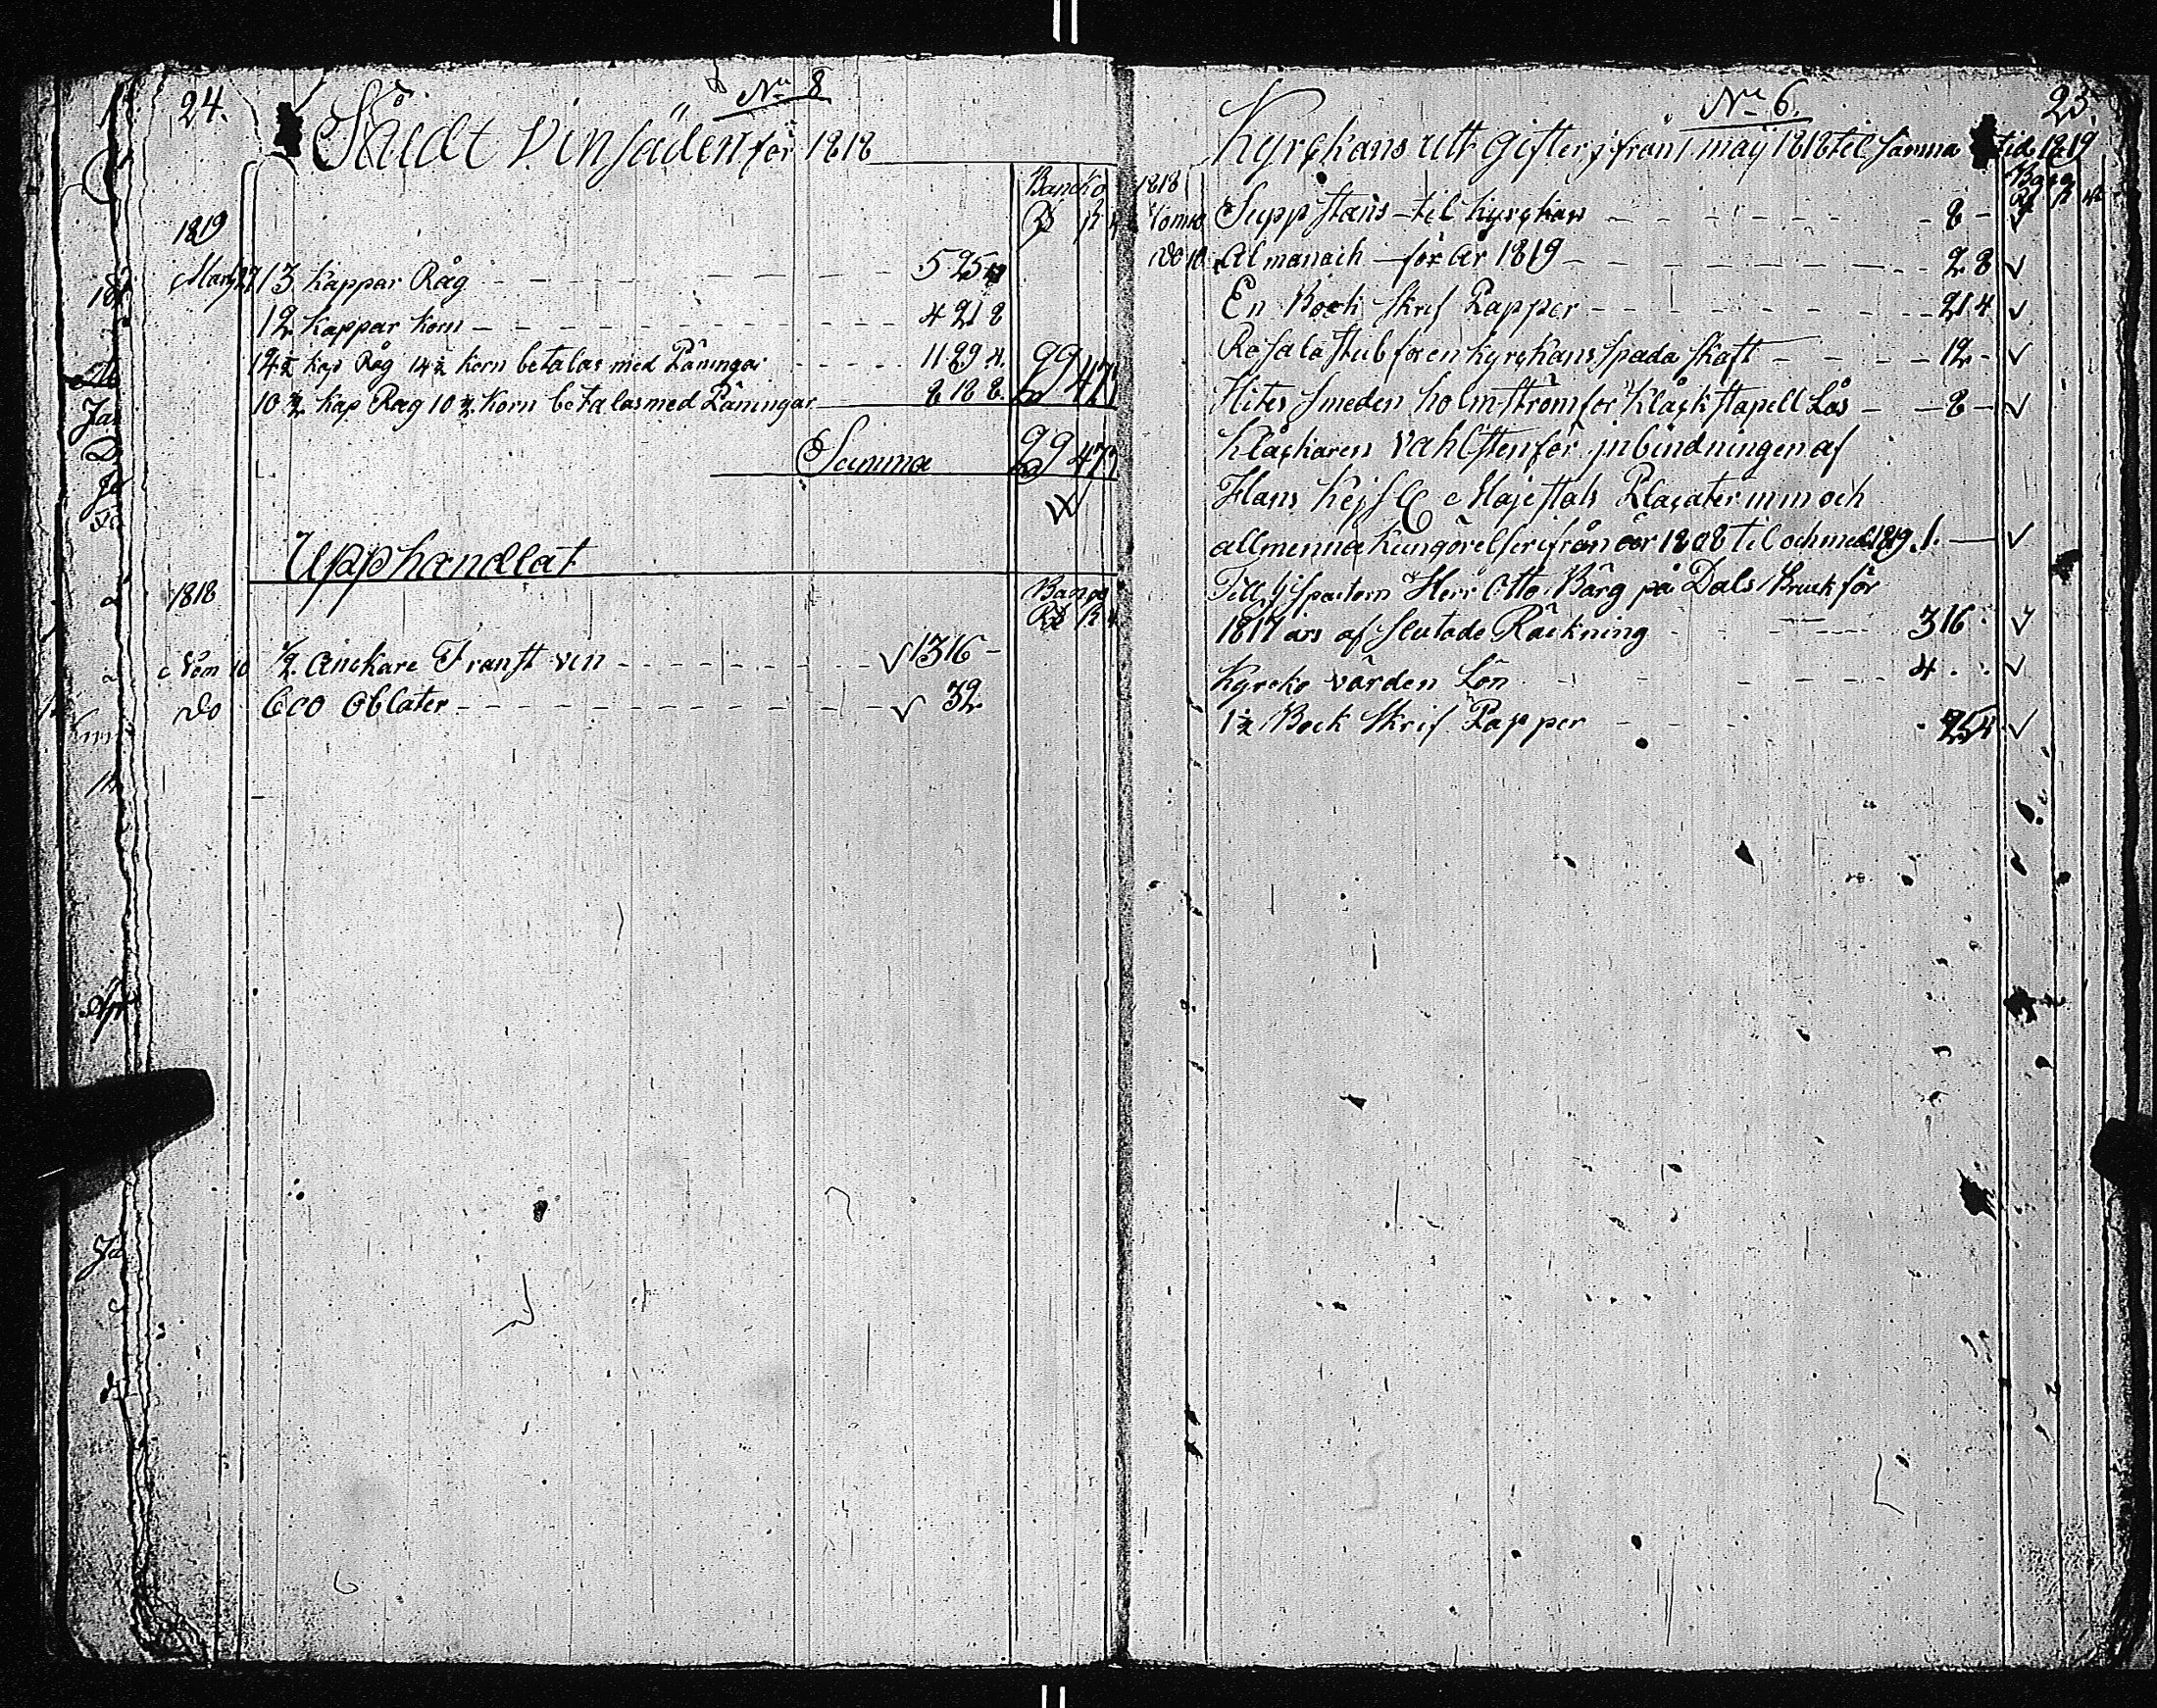 24.
No 8
Såldt Vinsäden för 1818
Bancko
1819
Mars 27 13 Kappar Råg 5 25
12 Kappar Korn 4 21 8
14½ Kap Råg 14½ Korn betalas med Päningar 11 29 4. 29 47
10½ Kap Råg 10½ Korn betalas med Päningar 8 18 8.
Summa 29 47
Upphandlat
1818 Banco
Nom 10 ½ Anckare Franst vin √ 13 16 -
Do 600 Oblater √ 32
No 6. 25.
Kyrckans utt gifter ifrån 1 maij 1818 til samma tid 1819
1818
Nom 10 Suppstans til Kyrckan 8 - √
Do 10 Almanach för år 1819 2 8 √
En Bock Skrif Papper 21 4 √
för en Kyrckans Spada Skaft 12 - √
Smeden Holmström för Klåckstapell Lås 8 - √
Klåckaren Vahlsten för jnbindningen af
Hans Majestäts Placater m m och
allmenna Kungörelser ifrån år 1808 til och med 1819 1. √
Till Herr Otto Bärg på Dals Bruck för
1817 års af Slutade Räckning 3 16 √
Kyrcko värden Lön 4 √
1½ Bock Skrif Papper 25 4 √